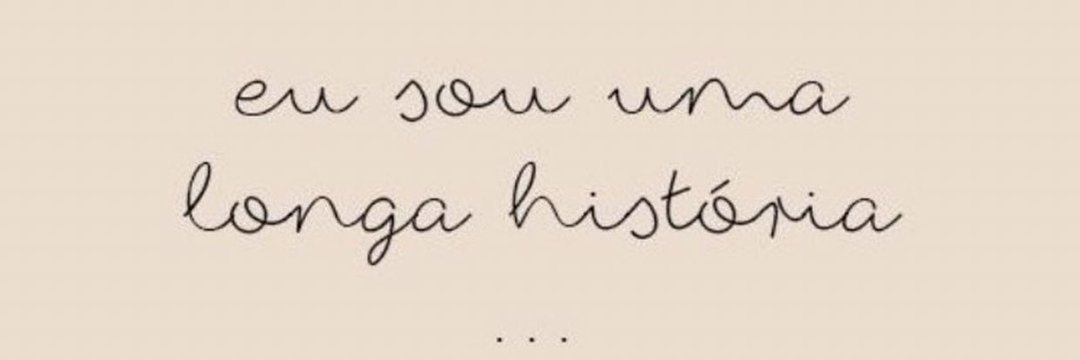 eu sou uma
longa história
...